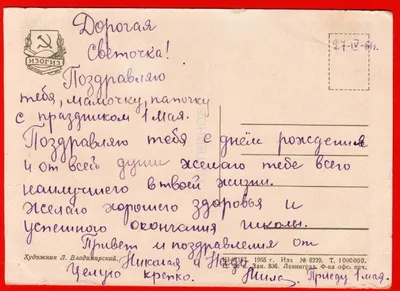 Дорогая
27-IV-61г.
Светочка!
ИЗОГИЗ
Поздравляю
тебя, мамочку, папочку
с праздником 1 Мая.
Поздравляю тебя с днём рождения
и от всей души желаю тебе всего
наилучшего в твоей жизни.
Желаю хорошего здоровья и
успешного окончания школы.
Привет и поздравления от
Художник Л. Владимирский.
1956 г. Изд. № 6229. Т. 1000000.
Зак. 836. Ленинград. Ф-ка офс. печ.
Николая и Нади.
Целую крепко. Мила. Приеду 1 мая.